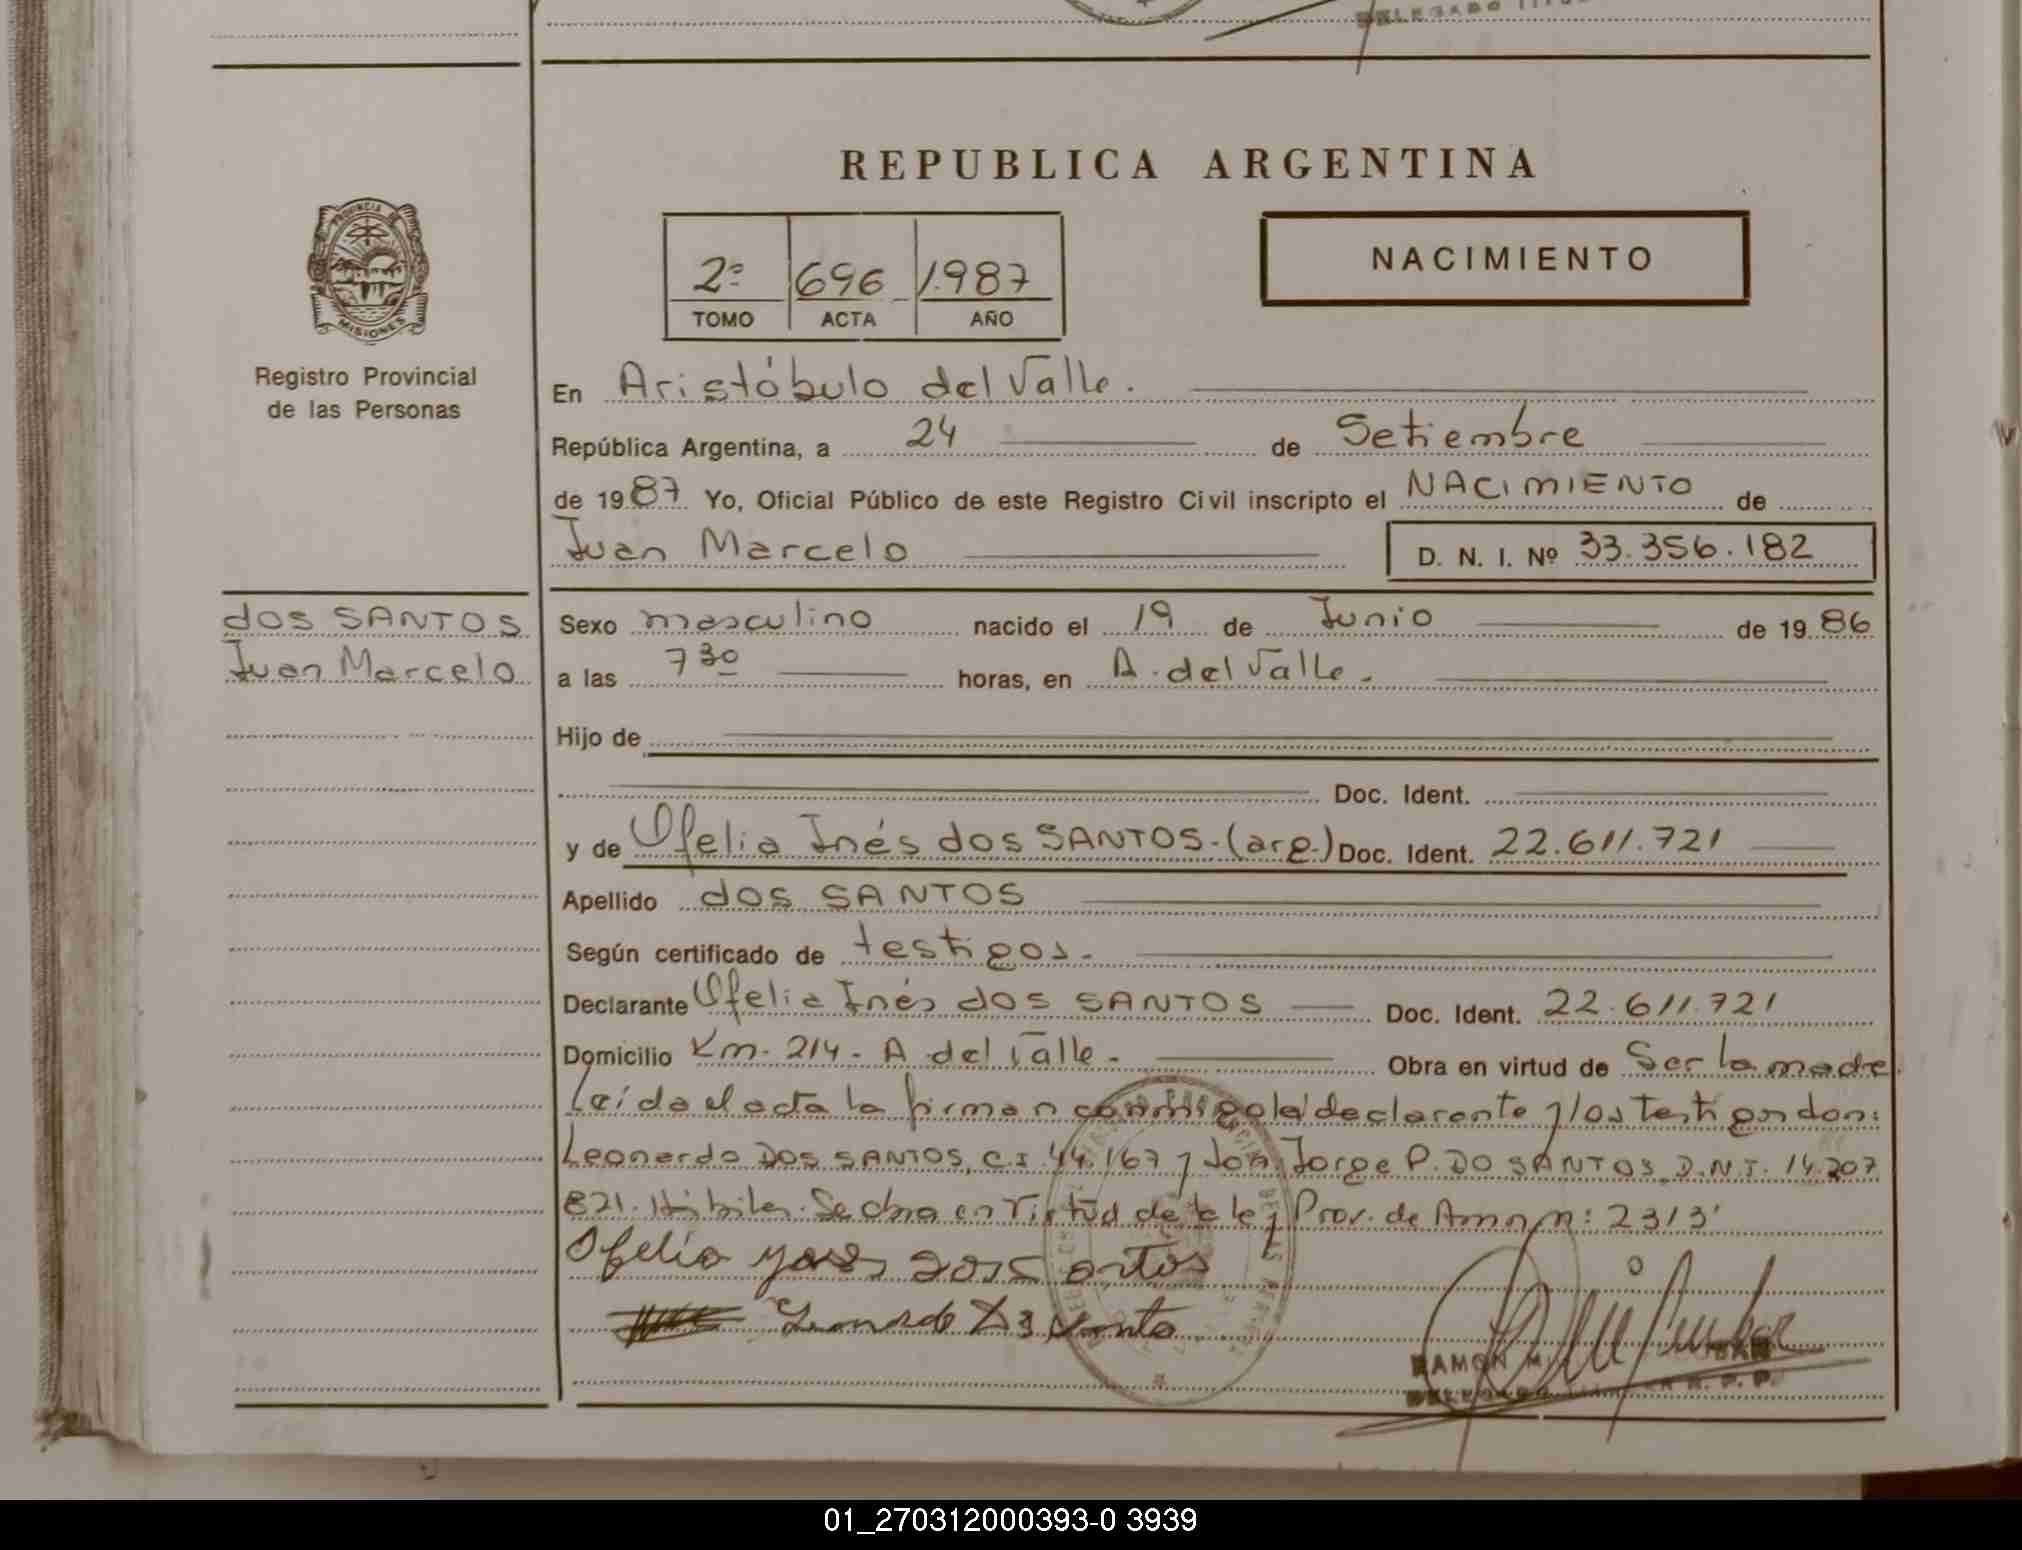 REPUBLICA ARGENTINA
PROVINCIA DE
MISIONES
Registro Provincial
de las Personas
2º 696 1.987
TOMO ACTA AÑO
NACIMIENTO
En Aristóbulo del Valle.
República Argentina, a 24 de Setiembre
de 1987 Yo, Oficial Público de este Registro Civil inscripto el NACIMIENTO de
Juan Marcelo D. N. I. Nº 33.356.182
dos SANTOS
Juan Marcelo
Sexo masculino nacido el 19 de Junio de 1986
a las 7 30 horas, en A. del Valle.
Hijo de
Doc. Ident.
y de Ofelia Inés dos SANTOS.(arg.) Doc. Ident. 22.611.721
Apellido dos SANTOS
Según certificado de testigos.
Declarante Ofelia Inés dos SANTOS Doc. Ident. 22.611.721
Domicilio Km. 214 - A. del Valle. Obra en virtud de Ser la madre.
Leída el acta la firman conmigo la declarante y los testigos don:
Leonardo DOS SANTOS, C.I. 44.167 y don Jorge P. DO SANTOS D.N.I. 14.207
821. Hábiles. Se obra en virtud de la ley Prov. de Amn n: 2313
Ofelia dos Santos
RAMON M.
DELEGADO R. P. P.
01_270312000393-0 3939